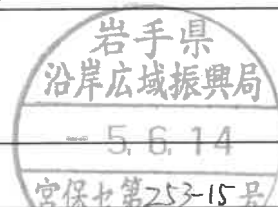 岩手県
沿岸広域振興局
5.6.14
宮保セ第253-15号